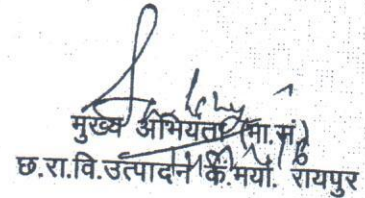 मुख्य अभियंता (मा.सं.)
छ.रा.वि.उत्पादन कं.मर्या. रायपुर